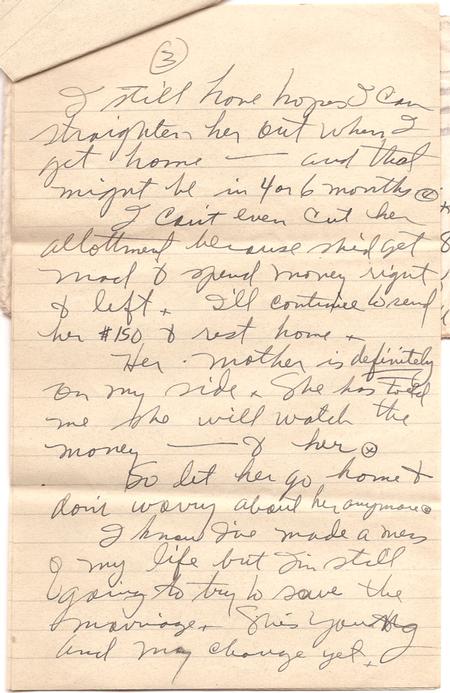 3
I still have hopes I can
straighten her out when I
get home — and that
might be in 4 or 6 months.
I can't even cut her
allottment because she'd get
mad & spend money right
& left. I'll continue to send
her $150 & rest home.
Her mother is definitely
on my side. She has told
me she will watch the
money — & her.
So let her go home &
don't worry about her anymore.
I know I've made a mess
of my life but I'm still
going to try to save the
marriage. She's young
and may change yet.